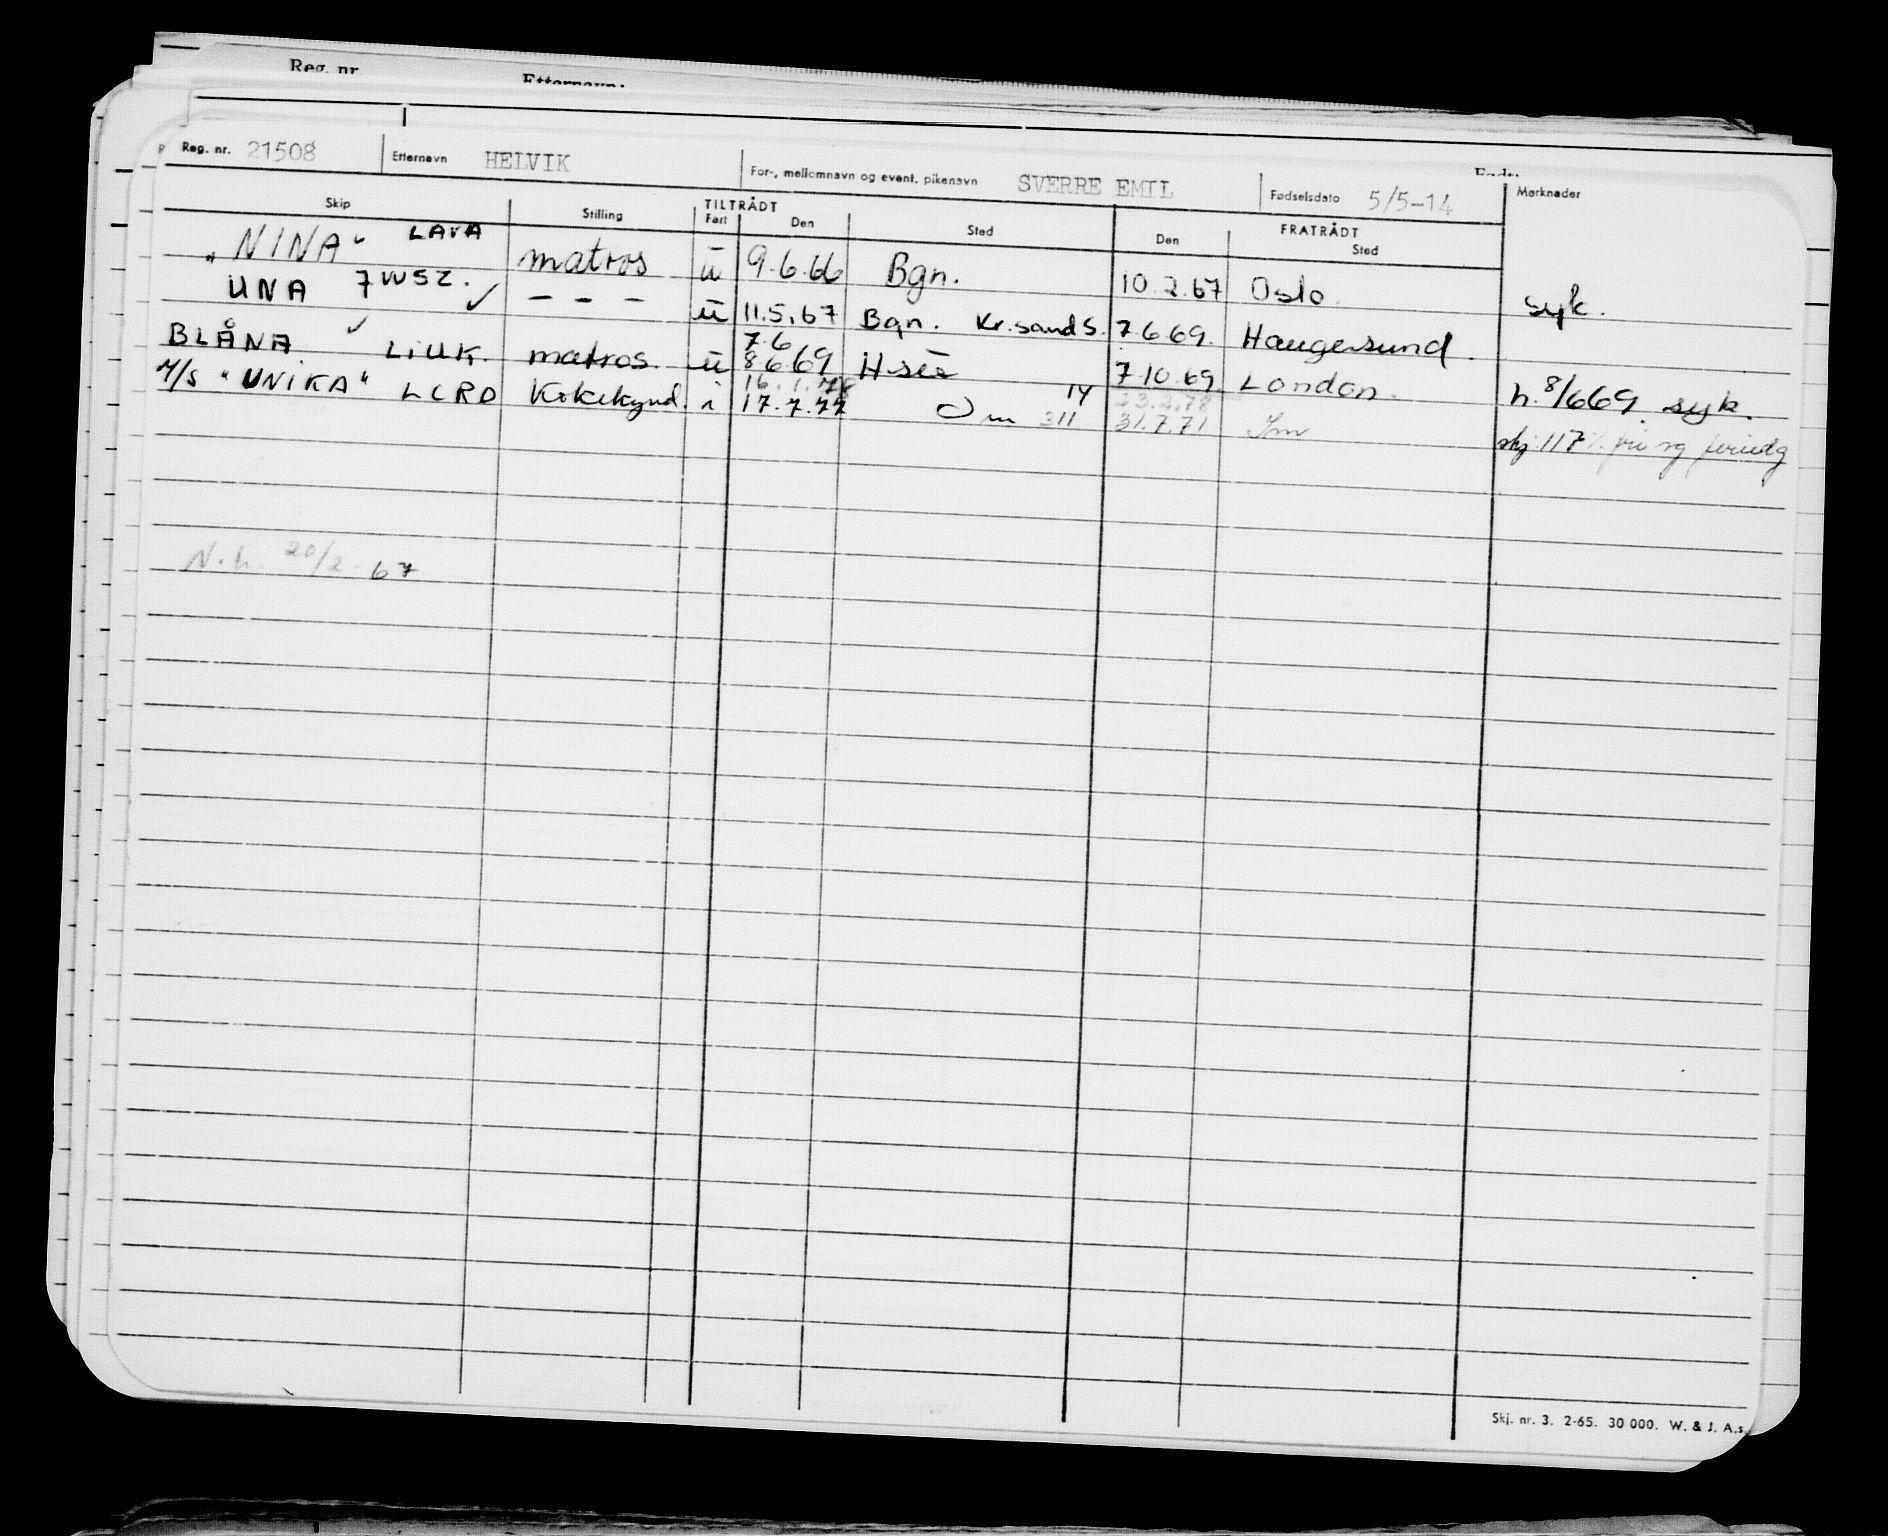 Reg. nr.
Reg. nr. 21508 Etternavn HELVIK For-, mellomnavn og event. pikenavn SVERRE EMIL Fødselsdato 5/5-14 Merknader
Skip Stilling TILTRÅDT Fart Den Sted FRATRÅDT Den Sted
"NINA" LAVA matros u 9.6.66 Bgn. 10.2.67 Oslo. syk.
UNA 7WSZ. ✓ - - - u 11.5.67 Bgn. Kr.sand S. 7.6.69. Haugesund.
7.6
BLÅNA ✓ LIUK. matros. u 8669 7.10.69. London. h. 8/669. syk.
16.1.78 23.2.78
M/S "UNIKA" LCRD i 17.7.77 311 31.7.71
N.h. 20/2-67
Skj. nr. 3. 2-65. 30 000. W. & J. A.s.